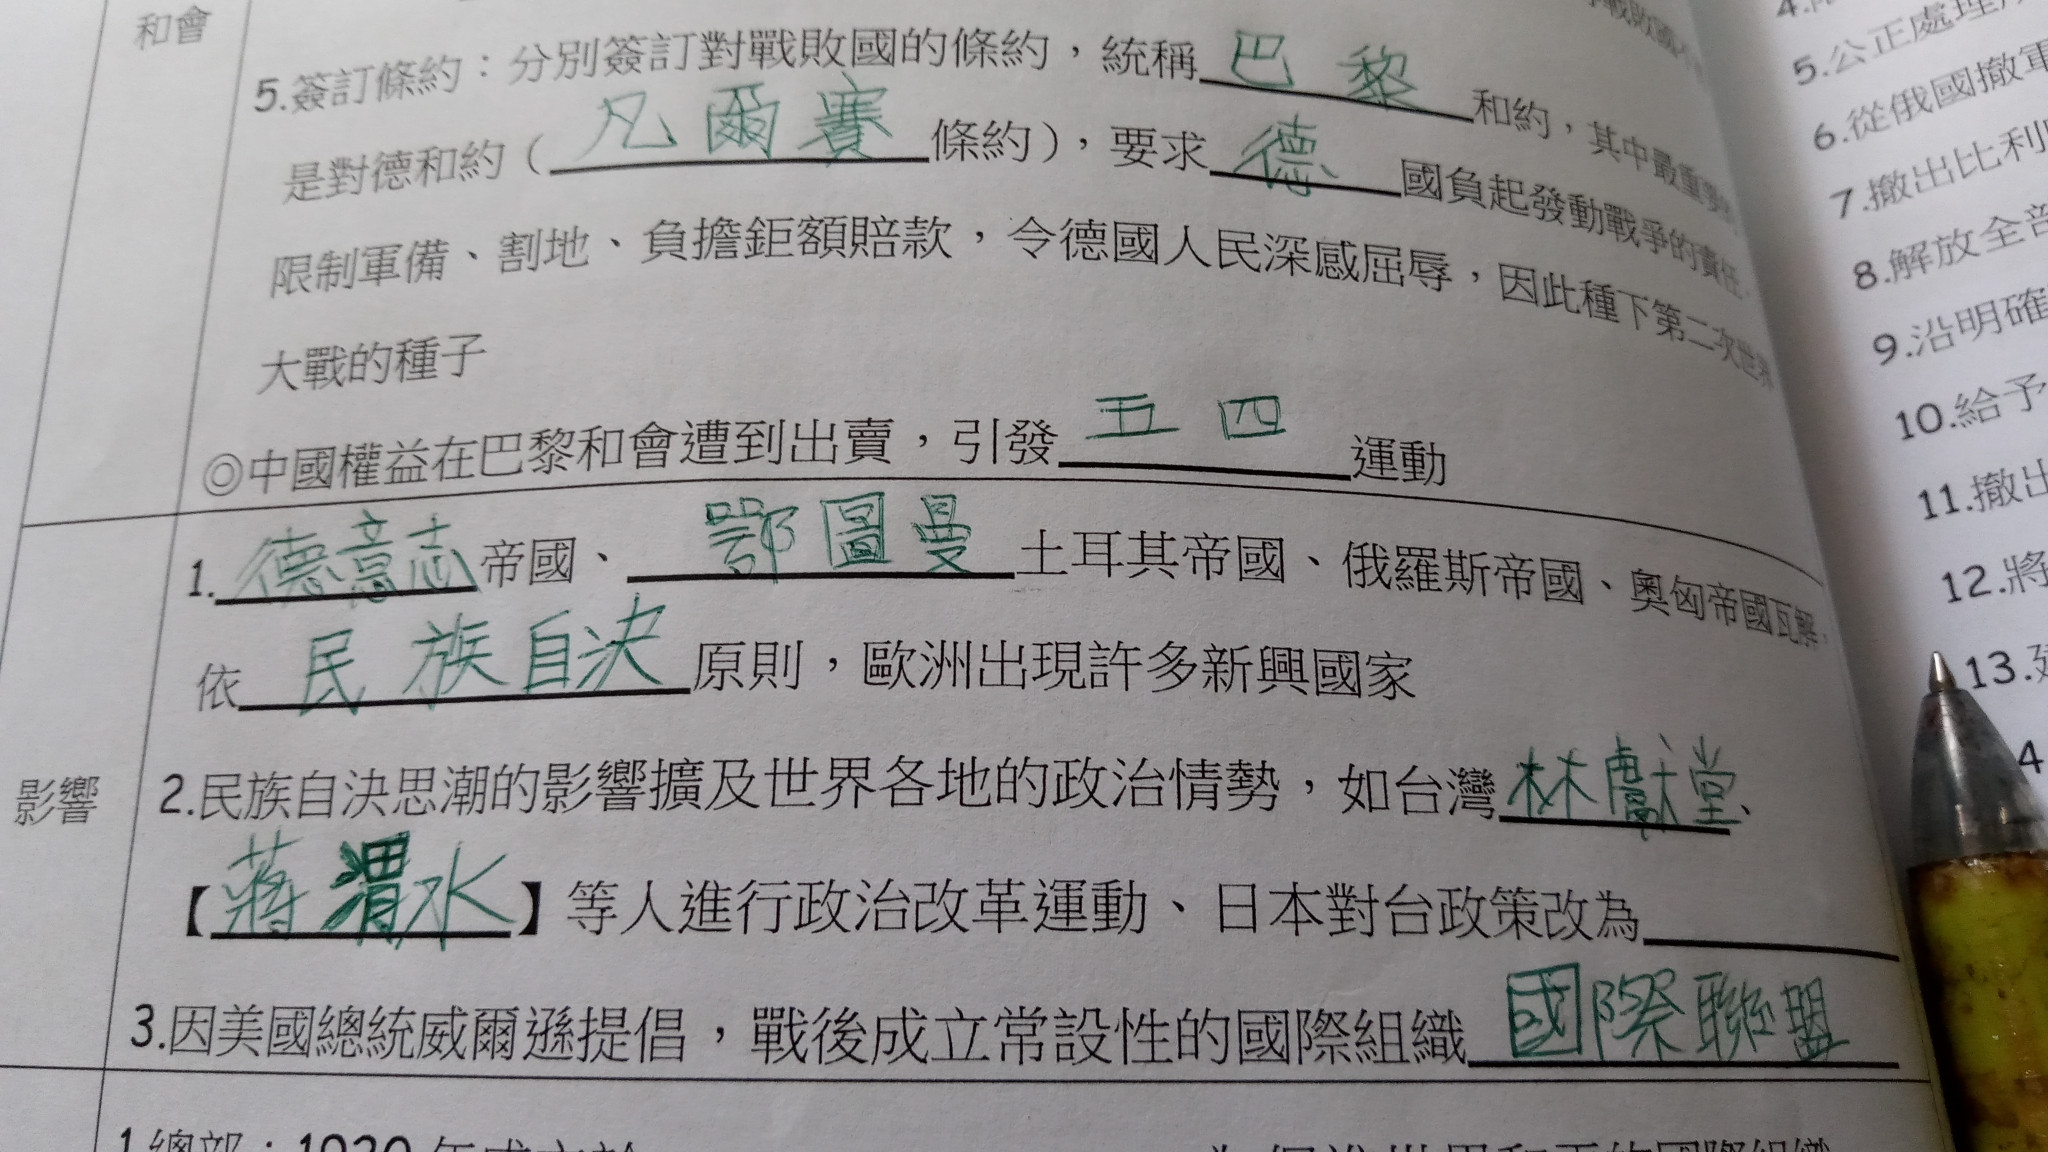 和會
5.簽訂條約：分別簽訂對戰敗國的條約，統稱巴黎和約，其中最重要的
是對德和約（凡爾賽條約），要求德國負起發動戰爭的責任、
限制軍備、割地、負擔鉅額賠款，令德國人民深感屈辱，因此種下第二次世界
大戰的種子
◎中國權益在巴黎和會遭到出賣，引發五四運動
影響
1.德意志帝國、鄂圖曼土耳其帝國、俄羅斯帝國、奧匈帝國瓦解，
依民族自決原則，歐洲出現許多新興國家
2.民族自決思潮的影響擴及世界各地的政治情勢，如台灣林獻堂、
【蔣渭水】等人進行政治改革運動、日本對台政策改為
3.因美國總統威爾遜提倡，戰後成立常設性的國際組織國際聯盟
1.總部：1920年成立於
4.
5.公正處理
6.從俄國撤軍
7.撤出比利時
8.解放全
9.沿明確
10.給予
11.撤出
12.將
13.
4